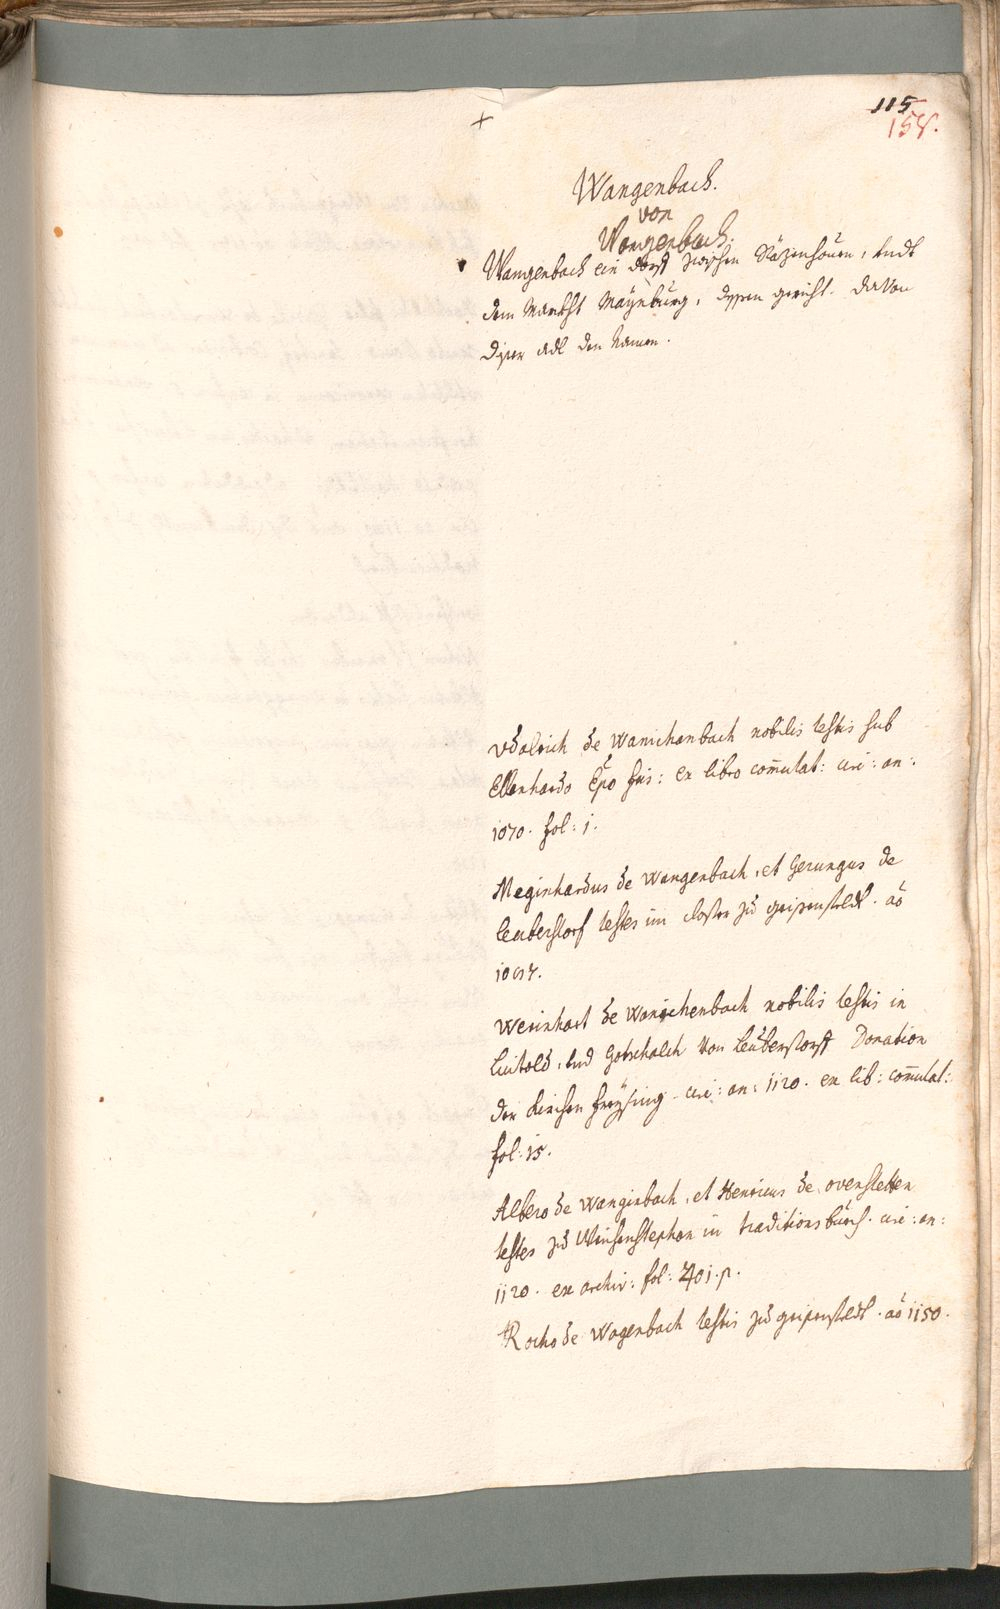 +
115
158.
Wangenbach.
von
Wangenbach.
Wangenbach ein dorf zwischen Näzenhausen, undt
dem Markht Maÿnburg, dessen gericht. davon
diser adl den Namen.
Vdalrich de Wanichanbach nobilis testis sub
Ellenhardo Epo fris: ex libro com̄utat: circ: an:
1070. fol: 1.
Meginhardus de Wangenbach, et Gerungus de
leuberstorf testes im closter zu geisenfeldt. aō
1097.
Werinhart de Wanichenbach nobilis testis in
Luitold, und Gotschalch von leuberstorff Donation
der kirchen freÿsing circ: an: 1120. ex lib: com̄utat:
fol: 15.
Albero de Wanginbach, et Henricus de ovenstetten
testes zu Weichenstephan in traditionsbuech. circ: an:
1120. ex archiv: fol: 401. p.
Rocho de Wagenbach testis zu geisenfeldt. aō 1150.